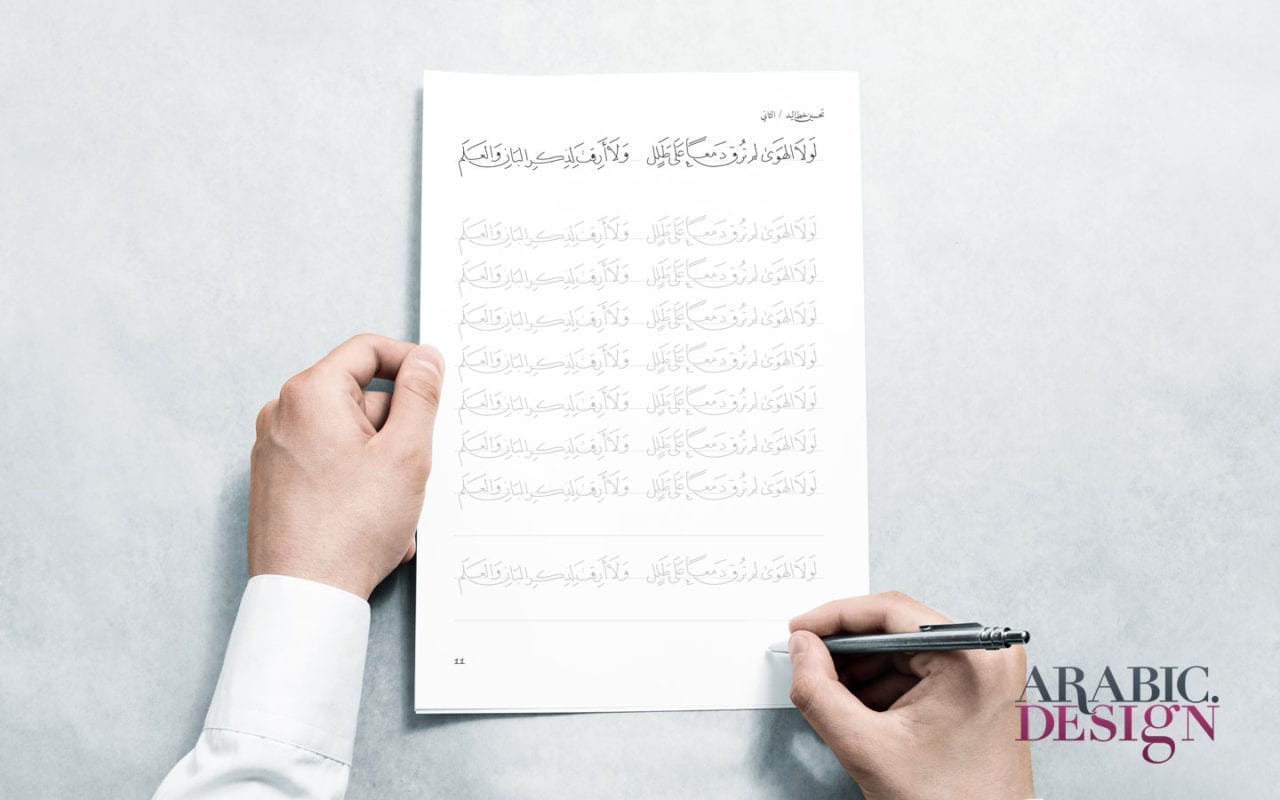 تحسين خط اليد / الثاني
لَولَا الهَوَىٰ لم تُرِق دَمعاً عَلَى طَلَلٍ وَلَا أَرِقتَ لِذِكرِ البَانِ وَالعَلَمِ
لَولَا الهَوَىٰ لم تُرِق دَمعاً عَلَى طَلَلٍ وَلَا أَرِقتَ لِذِكرِ البَانِ وَالعَلَمِ
لَولَا الهَوَىٰ لم تُرِق دَمعاً عَلَى طَلَلٍ وَلَا أَرِقتَ لِذِكرِ البَانِ وَالعَلَمِ
لَولَا الهَوَىٰ لم تُرِق دَمعاً عَلَى طَلَلٍ وَلَا أَرِقتَ لِذِكرِ البَانِ وَالعَلَمِ
لَولَا الهَوَىٰ لم تُرِق دَمعاً عَلَى طَلَلٍ وَلَا أَرِقتَ لِذِكرِ البَانِ وَالعَلَمِ
لَولَا الهَوَىٰ لم تُرِق دَمعاً عَلَى طَلَلٍ وَلَا أَرِقتَ لِذِكرِ البَانِ وَالعَلَمِ
لَولَا الهَوَىٰ لم تُرِق دَمعاً عَلَى طَلَلٍ وَلَا أَرِقتَ لِذِكرِ البَانِ وَالعَلَمِ
لَولَا الهَوَىٰ لم تُرِق دَمعاً عَلَى طَلَلٍ وَلَا أَرِقتَ لِذِكرِ البَانِ وَالعَلَمِ
لَولَا الهَوَىٰ لم تُرِق دَمعاً عَلَى طَلَلٍ وَلَا أَرِقتَ لِذِكرِ البَانِ وَالعَلَمِ
11
ARABIC.
DESIGN